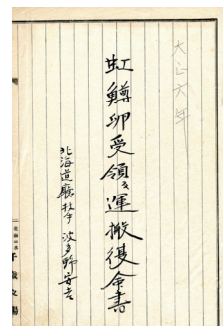 大正六年
虹鱒卵受領及運搬復命書
北海道廳技手 波多野安吉